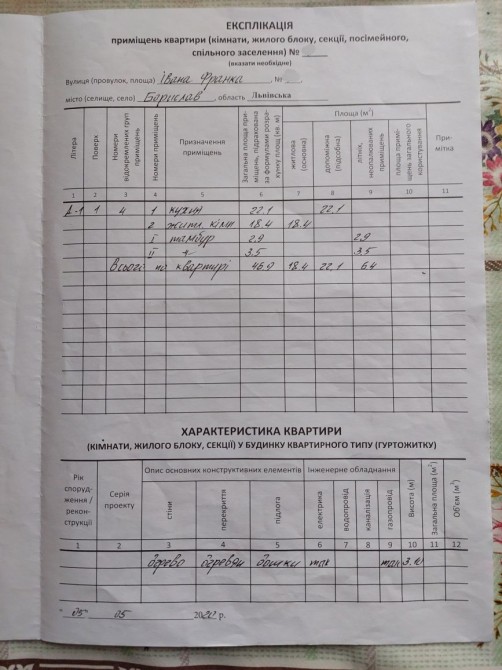 ЕКСПЛІКАЦІЯ
приміщень квартири (кімнати, жилого блоку, секції, посімейного,
спільного заселення) №
(вказати необхідне)
Вулиця (провулок, площа) Івана Франка, №
місто (селище, село) Борислав, область Львівська
Літера Поверх Номери відокремлених груп приміщень Номери приміщень Призначення приміщень Загальна площа приміщень, підрахована за формулами розрахунку площ (кв. м) Площа (м²) Примітка
житлова (основна) допоміжна (підсобна) літніх, неопалюваних приміщень площа приміщень загального користування
1 2 3 4 5 6 7 8 9 10 11
А-1 1 4 1 кухня 22.1 22.1
2 житл. кімн 18.4 18.4
І тамбур 2.9 2.9
ІІ 3.5 3.5
Всього по квартирі 46.9 18.4 22.1 6.4
ХАРАКТЕРИСТИКА КВАРТИРИ
(КІМНАТИ, ЖИЛОГО БЛОКУ, СЕКЦІЇ) У БУДИНКУ КВАРТИРНОГО ТИПУ (ГУРТОЖИТКУ)
Рік спорудження / реконструкції Серія проекту Опис основних конструктивних елементів Інженерне обладнання Висота (м) Загальна площа (м²) Об'єм (м³)
стіни перекриття підлога електрика водопровід каналізація газопровід
1 2 3 4 5 6 7 8 9 10 11 12
дерево деревян дошки так так
"05" 05 2022 р.